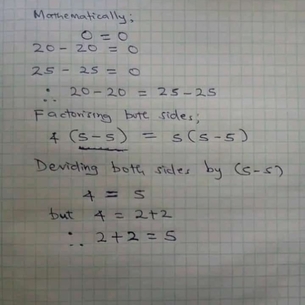 Mathematically;
0 = 0
20 - 20 = 0
25 - 25 = 0
∴ 20 - 20 = 25 - 25
Factorising bote sides;
4 (5-5) = 5(5-5)
Deviding both sides by (5-5)
4 = 5
but 4 = 2+2
∴ 2+2 = 5